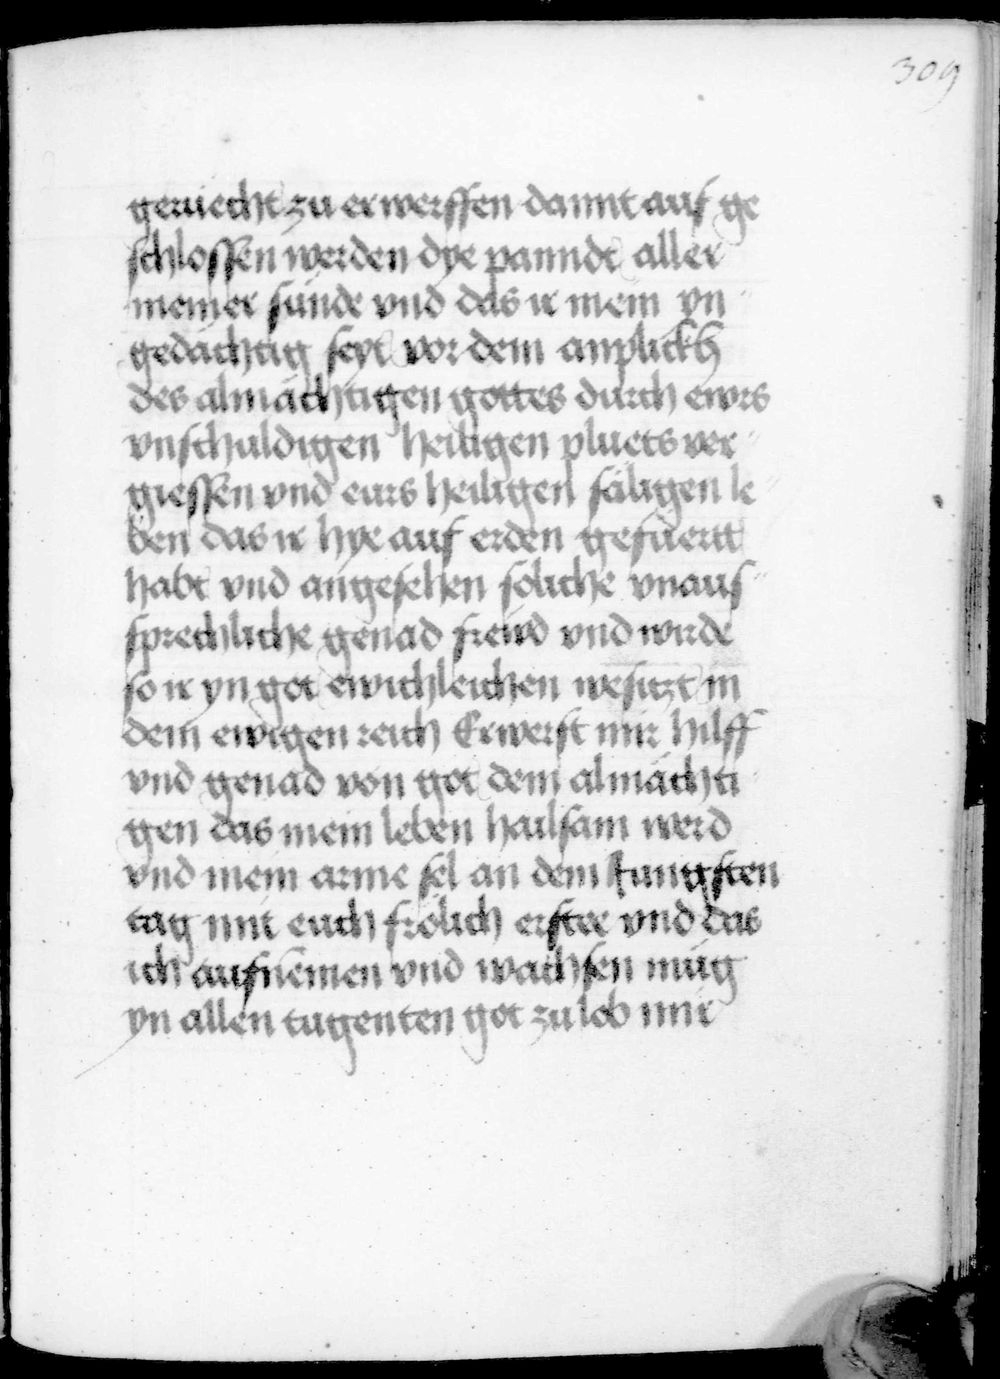 309
geruecht zu erwerffen damit auf ge
schlossen werden dye panndt aller
meiner sünde vnd das ir mein yn
gedächtig seyt vor dem anplickh
des almächtigen gottes durch ewrs
vnschuldigen heiligen pluets ver
giessen vnd eurs heiligen säligen le
ben das ir hye auf erden gefuertt
habt vnd angesehen soliche vnaus
sprechliche genad freud vnd wirde
so ir yn got ewichleichen wesitzt in
dem ewigen reich Erwerft mir hilff
vnd genad von got dem almächti
gen das mein leben hailsam werd
vnd mein arme sel an dem Jungsten
tag mit euch frölich erstee vnd das
ich aufnemen vnd wachsen müg
yn allen tugenten got zu lob mir